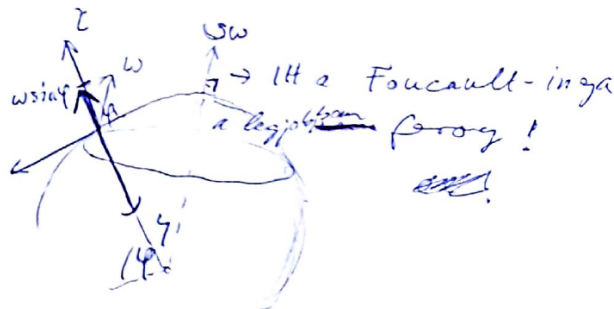 z
ω
ω
ω sin φ
φ
→ Itt a Foucault-inga
a legjobban forog!
φ